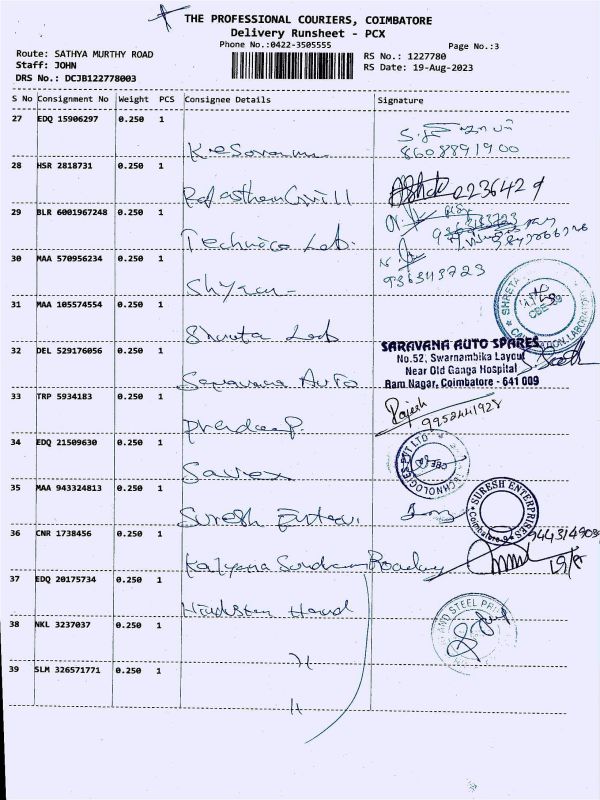 THE PROFESSIONAL COURIERS, COIMBATORE
Delivery Runsheet - PCX
Phone No.:0422-3505555
Page No.:3
Route: SATHYA MURTHY ROAD
Staff: JOHN
DRS No.: DCJB122778003
RS No.: 1227780
RS Date: 19-Aug-2023
S No Consignment No Weight PCS Consignee Details Signature
27 EDQ 15906297 0.250 1
8608891900
28 HSR 2818731 0.250 1
29 BLR 6001967248 0.250 1 Technico Lab.
30 MAA 570956234 0.250 1 Shyam
936343723
31 MAA 105574554 0.250 1 Shreeta Lab
32 DEL 529176056 0.250 1 Saravana Auto
SARAVANA AUTO SPARES
No.52, Swarnambika Layout
Near Old Ganga Hospital
Ram Nagar, Coimbatore - 641 009
33 TRP 5934183 0.250 1 Pradeep
Rajesh
9952441928
34 EDQ 21509630 0.250 1 Savex
TECHNOLOGIES PVT LTD
CBE
35 MAA 943324813 0.250 1 Suresh Enter.
SURESH ENTERPRISES
Coimbatore-9
36 CNR 1738456 0.250 1 Kalyana Sundaram Roadway
19/8
37 EDQ 20175734 0.250 1 Hindustan Hand
38 NKL 3237037 0.250 1 H
39 SLM 326571771 0.250 1 H